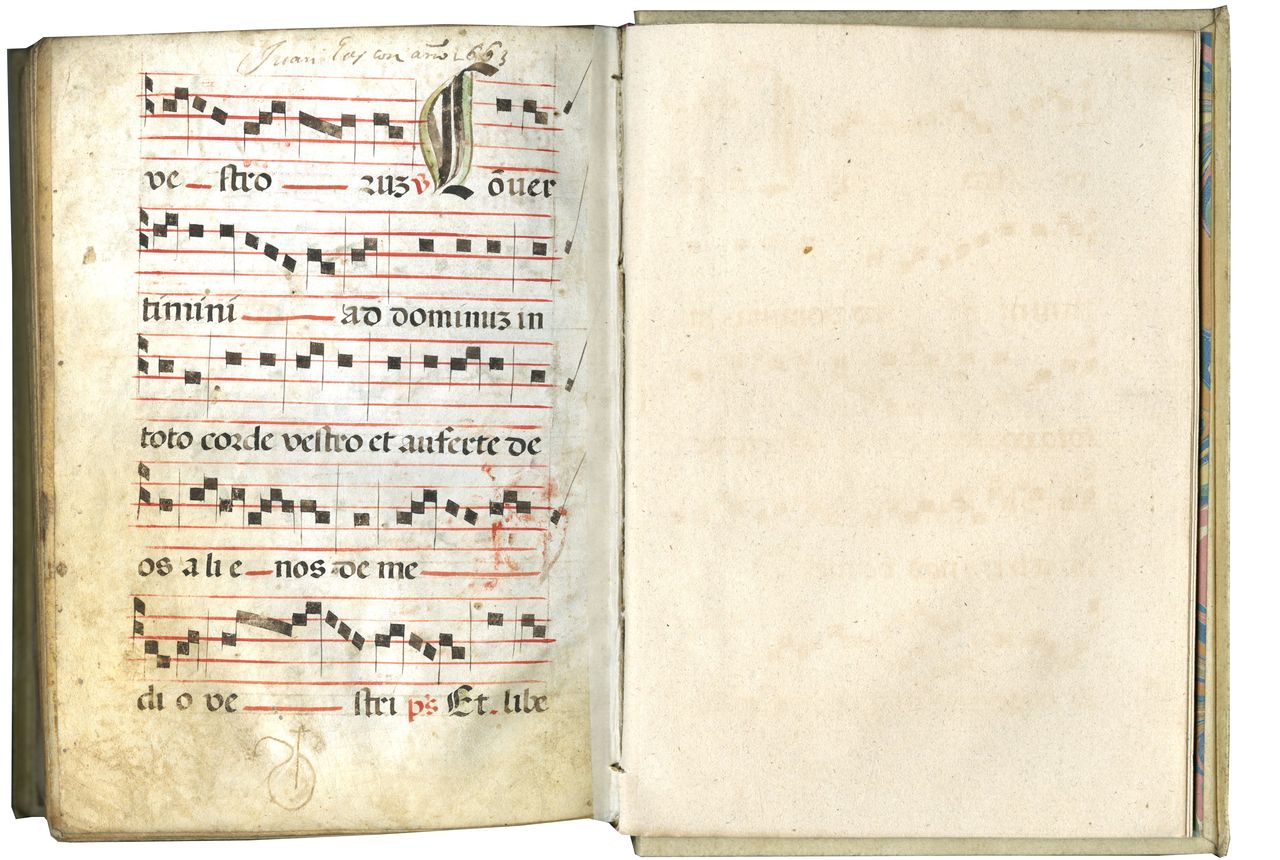 Juan Gascon año 1663
ve stro ꝛuʒ ℣ Cõuer
timini ad dominuʒ in
toto coꝛde vestro et auferte de
os a li e nos de me
di o ve stri p̃s Et. libe